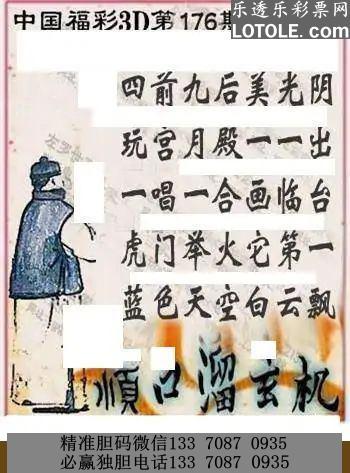 乐透乐彩票网
LOTOLE.COM
中国福彩3D第176期
四前九后美光阴
玩宫月殿一一出
一唱一合画临台
虎门举火它第一
蓝色天空白云飘
顺口溜玄机
精准胆码微信133 7087 0935
必赢独胆电话133 7087 0935